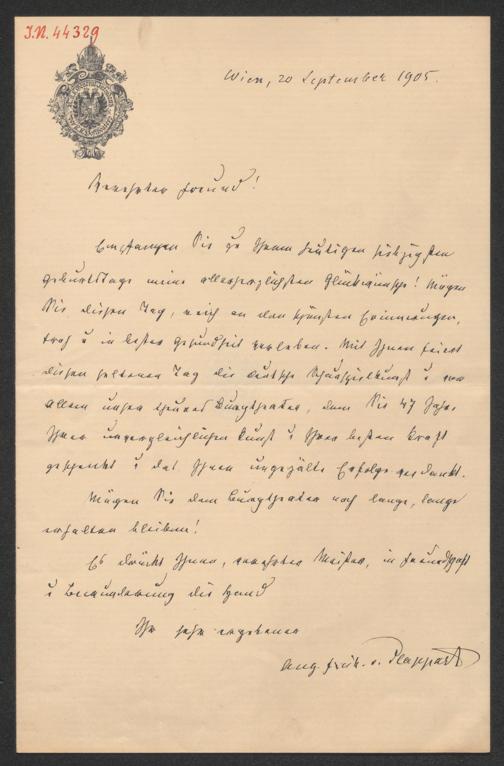 J.N. 44329
Wien, 20 September 1905.
Verehrter Freund!
Empfangen Sie zu Ihrem heutigen siebzigsten
Geburtstage meine allerherzlichsten Glückwünsche! Mögen
Sie diesen Tag, reich an den schönsten Erinnerungen,
froh u in bester Gesundheit verleben. Mit Ihnen feiert
diesen seltenen Tag die deutsche Schauspielkunst u vor
allem unser theures Burgtheater, dem Sie 47 Jahre
Ihrer unvergleichlichen Kunst u Ihrer besten Kraft
geschenkt u das Ihnen ungezälte Erfolge verdankt.
Mögen Sie dem Burgtheater noch lange, lange
erhalten bleiben!
Es drückt Ihnen, verehrter Meister, in Freundschaft
u Bewunderung die Hand
Ihr sehr ergebener
Aug. Frhr. v. Plappart